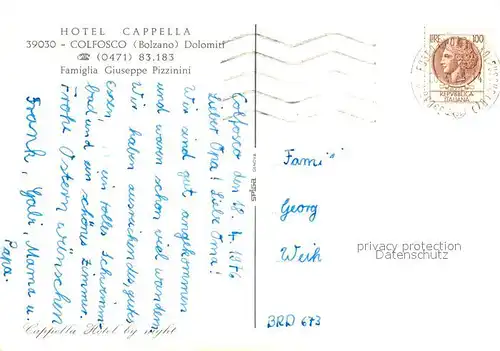 HOTEL CAPPELLA
39030 - COLFOSCO (Bolzano) Dolomiti
☎ (0471) 83.183
Famiglia Giuseppe Pizzinini
Colfosco den 18. 4. 1976
Lieber Opa! Liebe Oma!
Wir sind gut angekommen
und waren schon viel wandern.
Wir haben ausreichendes, gutes
Essen, ein tolles Schwimm
bad und ein schönes Zimmer.
Frohe Ostern wünschen
Frank, Gabi, Mama u.
Papa.
Cappella Hotel by night
LIRE 100
REPUBBLICA
ITALIANA
Fami
Georg
BRD 673
privacy protection
AnsichtskartenLexikon